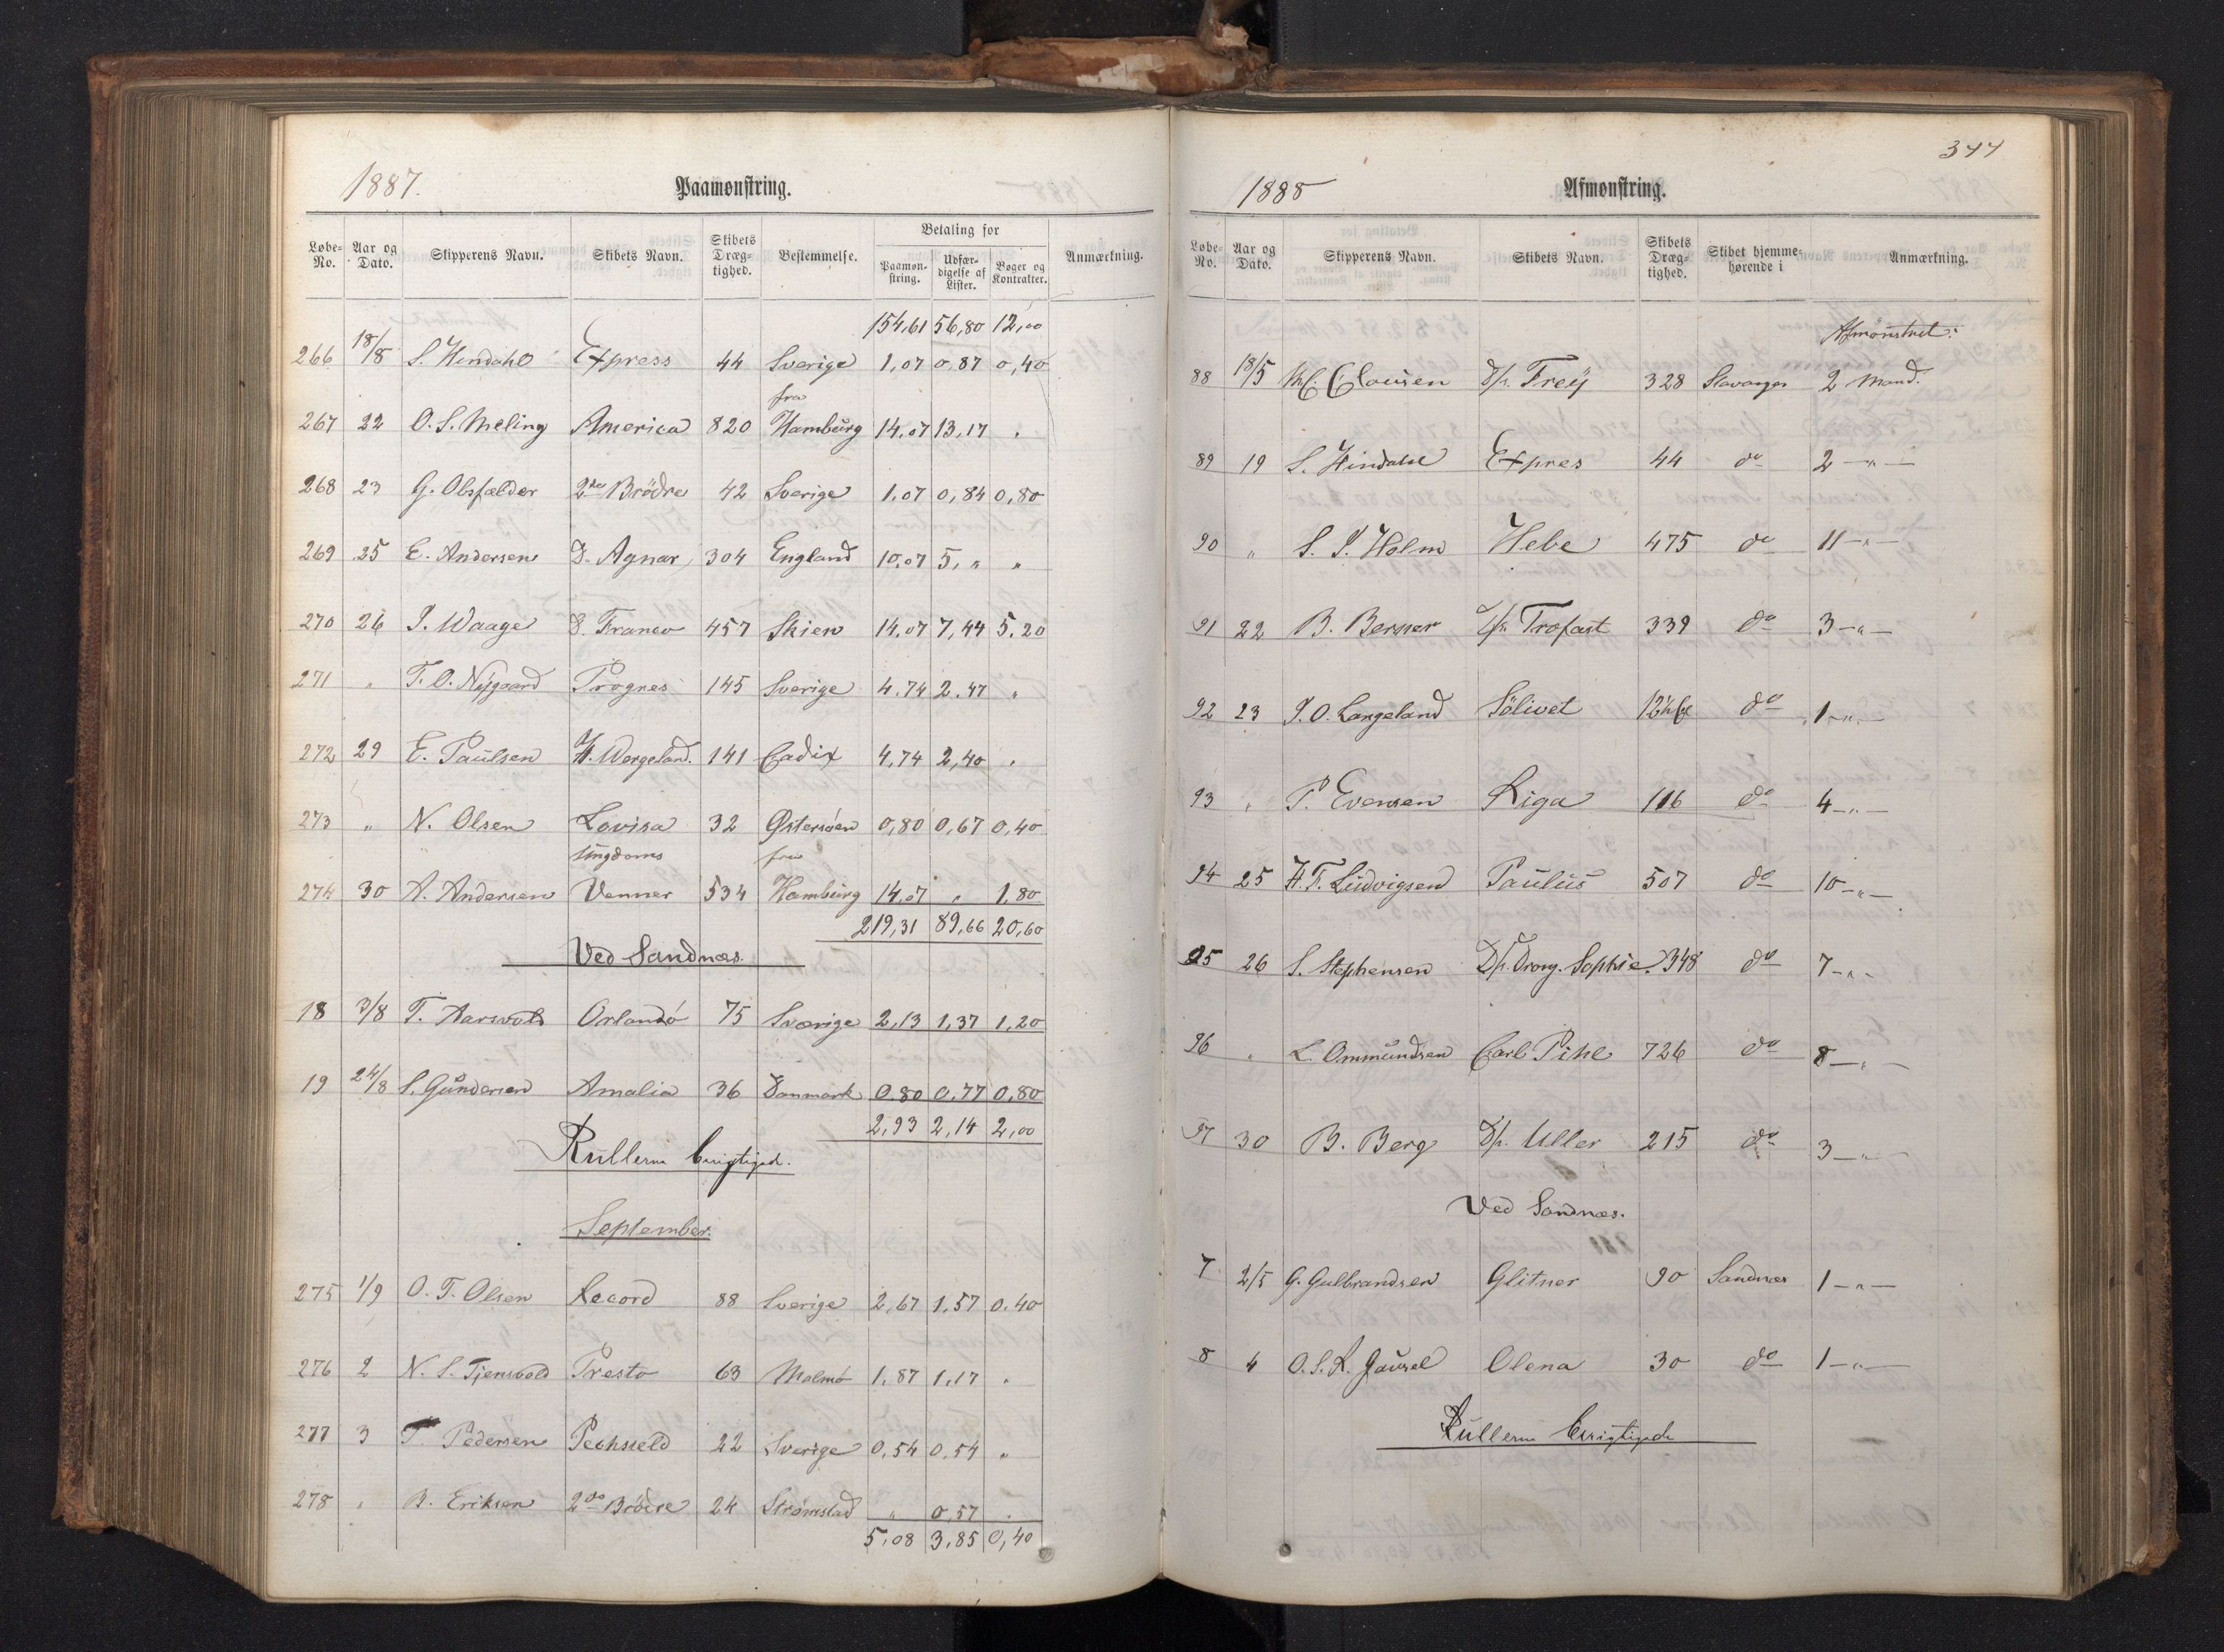 1887. Paamønstring.
Løbe-No. Aar og Dato. Skipperens Navn. Skibets Navn. Skibets Dræg-tighed. Bestemmelse. Betaling for Paamøn-string. Udfær-digelse af Lister. Bøger og Kontrakter. Anmærkning.
154,61 56,80 12,00
266 18/8 S. Hindahl Express 44 Sverige 1,07 0,87 0,40
fra
267 22 O. S. Meling America 820 Hamburg 14,07 13,17 "
268 23 G. Obsfælder 2de Brödre 42 Sverige 1,07 0,84 0,80
269 25 E. Andersen D. Agnar 304 England 10,07 5, " "
270 26 J. Waage D. Franco 457 Skien 14,07 7,44 5.20
271 " T. O. Nÿgaard Prognes 145 Sverige 4.74 2.47 "
272 29 E. Paulsen H. Wergeland. 141 Cadix 4,74 2,40 "
273 " N. Olsen Lovisa 32 Østersøen 0,80 0,67 0,40
Ungdoms fra
274 30 A. Andersen Venner 534 Hamburg 14,07 " 1,80
219,31 89,66 20,60
Ved Sandnæs.
18 3/8 T. Aarsvold Orlando 75 Sverige 2,13 1,37 1,20
19 24/8 S. Gundersen Amalia 36 Danmark 0.80 0.77 0,80
2,93 2,14 2,00
Rullerne berigtigede.
September.
275 1/9 O. T. Olsen Record 88 Sverige 2,67 1,57 0.40
276 2 N. S. Tjensvold Presto 63 Malmö 1,87 1,17 "
277 3 T. Pedersen 22 Sverige 0,54 0,54 "
278 " B. Eriksen 2de Brödre 24 Strömstad " 0,57 "
5,08 3,85 0,40
344
1888 Afmønstring.
Løbe-No. Aar og Dato. Skipperens Navn. Skibets Navn. Skibets Dræg-tighed. Skibet hjemme-hørende i Anmærkning.
Afmönstret:
88 18/5 Clausen D/s. Freÿ 328 Stavanger 2 Mand.
89 19 S. Hindahl Expres 44 do 2 — " —
90 " S. J. Holm Hebe 475 do 11 — " —
91 22 B. Berner D/s. Trofast 339 do 3 — " —
92 23 J. O. Langeland Sölivet do 1 — " —
93 " P. Evensen Riga 116 do 4 — " —
94 25 H. T. Ludvigsen Paulus 507 do 10 — " —
95 26 S. Stephensen D/s. Drong. Sophie. 348 do 7 — " —
96 " L. Ommundsen Carl Pihl 726 do 8 — " —
97 30 B. Berg D/s. Uller 215 do 3 — " —
Ved Sandnæs.
7 2/5 G. Gulbrandsen Glitner 90 Sandnæs 1 — " —
8 4 O. S. A. Gausel Olena 30 do 1 — " —
Rullerne berigtigede